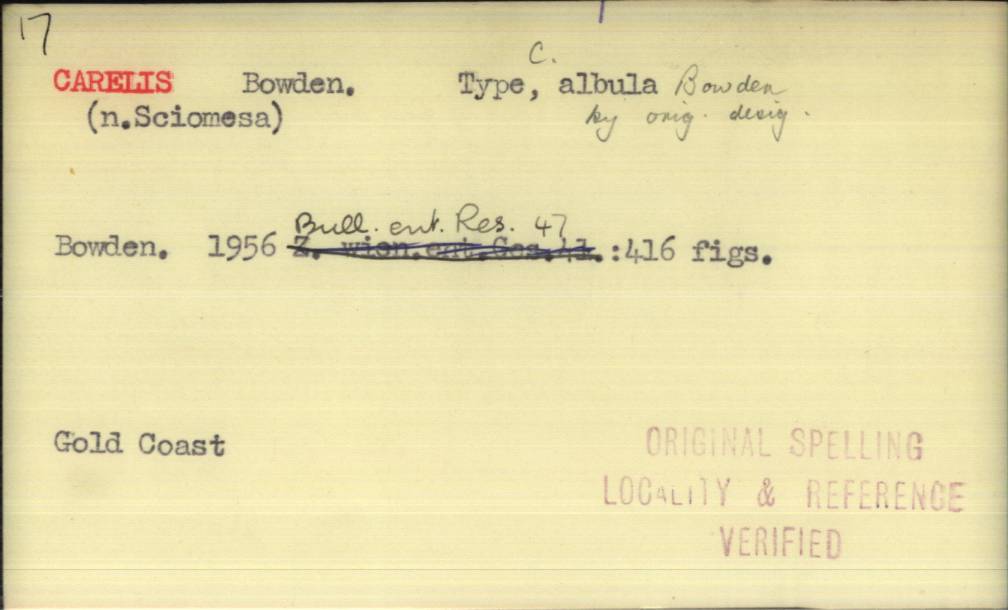 17
CARELIS Bowden. Type, C. albula Bowden
(n.Sciomesa) by orig. desig.
Bull. ent. Res. 47
Bowden. 1956 Z. wien.ent.Ges.41.:416 figs.
Gold Coast
ORIGINAL SPELLING
LOCALITY & REFERENCE
VERIFIED